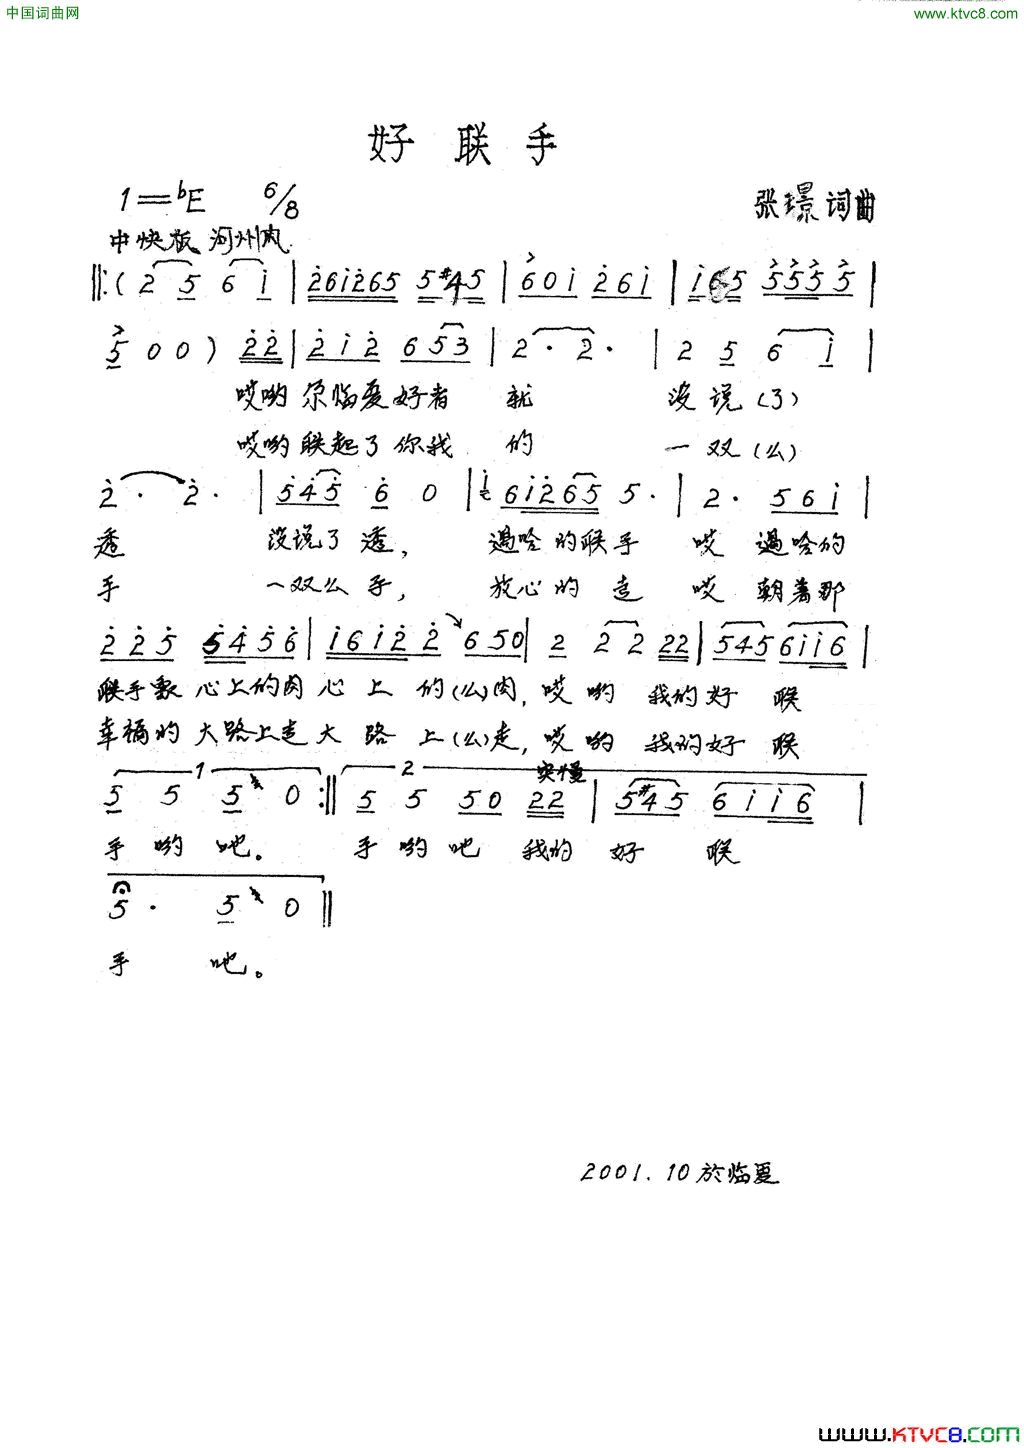 中国词曲网
www.ktvc8.com
好联手
1=bE 6/8
张璟词曲
中快板 河州风
‖:( 2 5 6 i | 2 6 i 2 6 5 5 #4 5 | 6 0 i 2 6 i | i 6 5 5 5 5 5 |
5 0 0 ) 2 2 | 2 i 2 6 5 3 | 2 · 2 · | 2 5 6 i |
哎哟 临夏好者 就 没说(了)
哎哟联起了你我 的 一双(么)
2 · 2 · | 5 4 5 6 0 | i 6 i 2 6 5 5 · | 2 · 5 6 i |
透 没说了透, 遇哈的联手 哎 遇哈的
手 一双么手, 放心的走 哎 朝着那
2 2 5 5 4 5 6 | i 6 i 2 2 6 5 0 | 2 2 2 2 2 | 5 4 5 6 i i 6 |
联手象 心上的肉 心上 的(么)肉, 哎哟 我的好 联
幸福的 大路上走大 路 上(么)走, 哎哟 我的好 联
1 2 突慢
5 5 5 0 :‖ 5 5 5 0 2 2 | 5 #4 5 6 i i 6 |
手哟吧。 手哟吧 我的 好 联
5 · 5 0 ‖
手 吧。
2001.10於临夏
www.KTVC8.com